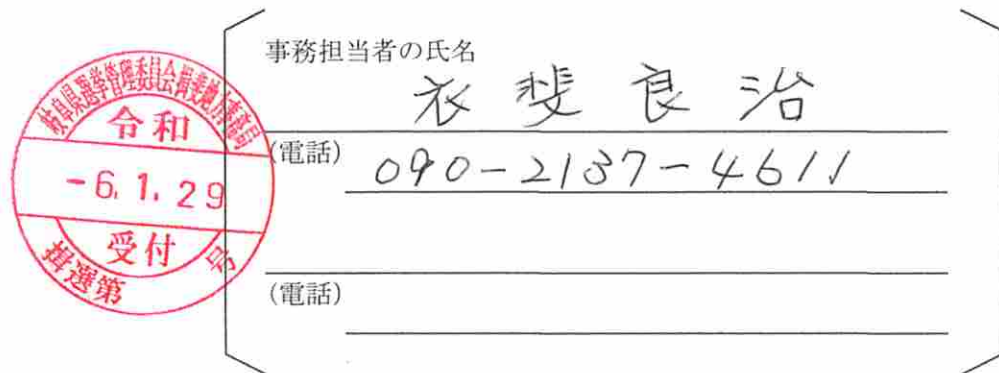 岐阜県選挙管理委員会揖斐地方事務局
令和
-6.1.29
受付
揖選第 号
事務担当者の氏名
衣斐良治
(電話) 090-2137-4611
(電話)